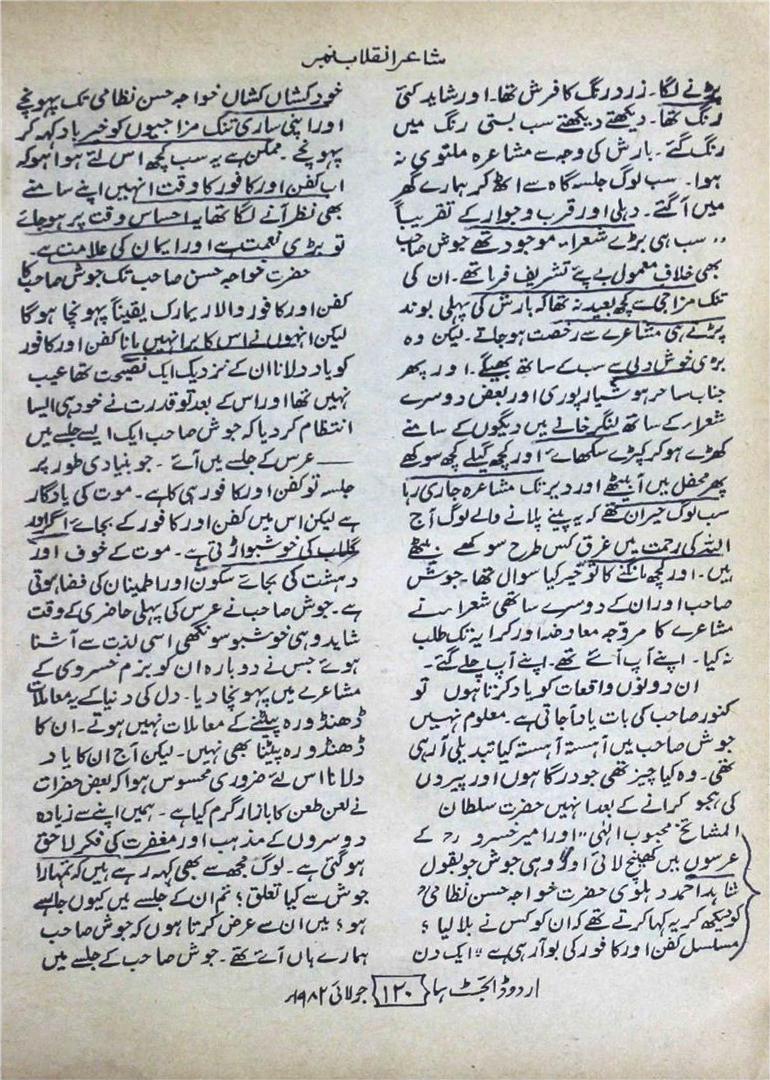 شاعر انقلاب نمبر
پڑنے لگا۔ زرد رنگ کا فرش تھا۔ اور شاید کئی
رنگ تھا۔ دیکھتے دیکھتے سب بسنتی رنگ میں
رنگ گئے۔ بارش کی وجہ سے مشاعرہ ملتوی نہ
ہوا۔ سب لوگ جلسہ گاہ سے اٹھ کر ہمارے گھر
میں آگئے۔ دہلی اور قرب و جوار کے تقریباً
،، سب ہی بڑے شعراء موجود تھے جوش صاحب
بھی خلاف معمول بے پئے تشریف فرما تھے۔ ان کی
تنک مزاجی سے کچھ بعید نہ تھا کہ بارش کی پہلی بوند
پڑتے ہی مشاعرے سے رخصت ہو جاتے۔ لیکن وہ
بڑی خوش دلی سے سب کے ساتھ بھیگے۔ اور پھر
جناب ساحر ہوشیار پوری اور بعض دوسرے
شعراء کے ساتھ لنگر خانے میں دیگوں کے سامنے
کھڑے ہو کر کپڑے سکھائے اور کچھ گیلے کچھ سوکھے
پھر محفل میں آبیٹھے اور دیر تک مشاعرہ جاری رہا
سب لوگ حیران تھے کہ یہ پینے پلانے والے لوگ آج
اللہ کی رحمت میں غرق کس طرح سوکھے بیٹھے
ہیں۔ اور کچھ مانگنے کا تو خیر کیا سوال تھا۔ جوش
صاحب اور ان کے دوسرے ساتھی شعراء نے
مشاعرے کا مروّجہ معاوضہ اور کرایہ تک طلب
نہ کیا۔ اپنے آپ آئے تھے۔ اپنے آپ چلے گئے۔
ان دونوں واقعات کو یاد کرتا ہوں تو
کنور صاحب کی بات یاد آجاتی ہے۔ معلوم نہیں
جوش صاحب میں آہستہ آہستہ کیا تبدیلی آرہی
تھی۔ وہ کیا چیز تھی جو درگاہوں اور پیروں
کی ہجو کرانے کے بعد انہیں حضرت سلطان
المشائخ محبوب الٰہی اور امیر خسرو رح کے
عرسوں میں کھینچ لائی اور وہی جوش جو بقول
شاہد احمد دہلوی حضرت خواجہ حسن نظامی
کو دیکھ کر یہ کہا کرتے تھے کہ ان کو کس نے بلا لیا ؛
مسلسل کفن اور کافور کی بو آرہی ہے ،، ایک دن
خود کشاں کشاں خواجہ حسن نظامی تک پہونچے
اور اپنی ساری تنک مزاجیوں کو خیر باد کہہ کر
پہونچے۔ ممکن ہے یہ سب کچھ اس لئے ہوا ہو کہ
اب کفن اور کافور کا وقت انہیں اپنے سامنے
بھی نظر آنے لگا تھا یہ احساس وقت پر ہو جائے
تو بڑی نعمت ہے اور ایمان کی علامت ہے۔
حضرت خواجہ حسن صاحب تک جوش صاحب کا
کفن اور کافور والا ریمارک یقیناً پہونچا ہوگا
لیکن انہوں نے اس کا برا نہیں مانا کفن اور کافور
کو یاد دلانا ان کے نزدیک ایک نصیحت تھا عیب
نہیں تھا اور اس کے بعد تو قدرت نے خود ہی ایسا
انتظام کر دیا کہ جوش صاحب ایک ایسے جلسے میں
— عرس کے جلسے میں آئے۔ جو بنیادی طور پر
جلسہ تو کفن اور کافور ہی کا ہے۔ موت کی یادگار
ہے لیکن اس میں کفن اور کافور کے بجائے اگر اور
گلاب کی خوشبو اڑتی ہے۔ موت کے خوف اور
دہشت کی بجائے سکون اور اطمینان کی فضا ہوتی
ہے۔ جوش صاحب نے عرس کی پہلی حاضری کے وقت
شاید وہی خوشبو سونگھی اسی لذت سے آشنا
ہوئے جس نے دوبارہ ان کو بزم خسروی کے
مشاعرے میں پہونچا دیا۔ دل کی دنیا کے یہ معاملات
ڈھنڈورہ پیٹنے کے معاملات نہیں ہوتے۔ ان کا
ڈھنڈورہ پیٹنا بھی نہیں۔ لیکن آج ان کا یاد
دلانا اس لئے ضروری محسوس ہوا کہ بعض حضرات
نے لعن طعن کا بازار گرم کیا ہے۔ ہمیں اپنے سے زیادہ
دوسروں کے مذہب اور مغفرت کی فکر لاحق
ہوگئی ہے۔ لوگ مجھ سے بھی کہہ رہے ہیں کہ تمہارا
جوش سے کیا تعلق ؛ تم ان کے جلسے میں کیوں جارہے
ہو ؛ میں ان سے عرض کرتا ہوں کہ جوش صاحب
ہمارے ہاں آئے تھے۔ جوش صاحب کے جلسے میں
اردو ڈائجسٹ ہما {۱۲۰} جولائی ۱۹۸۲ء